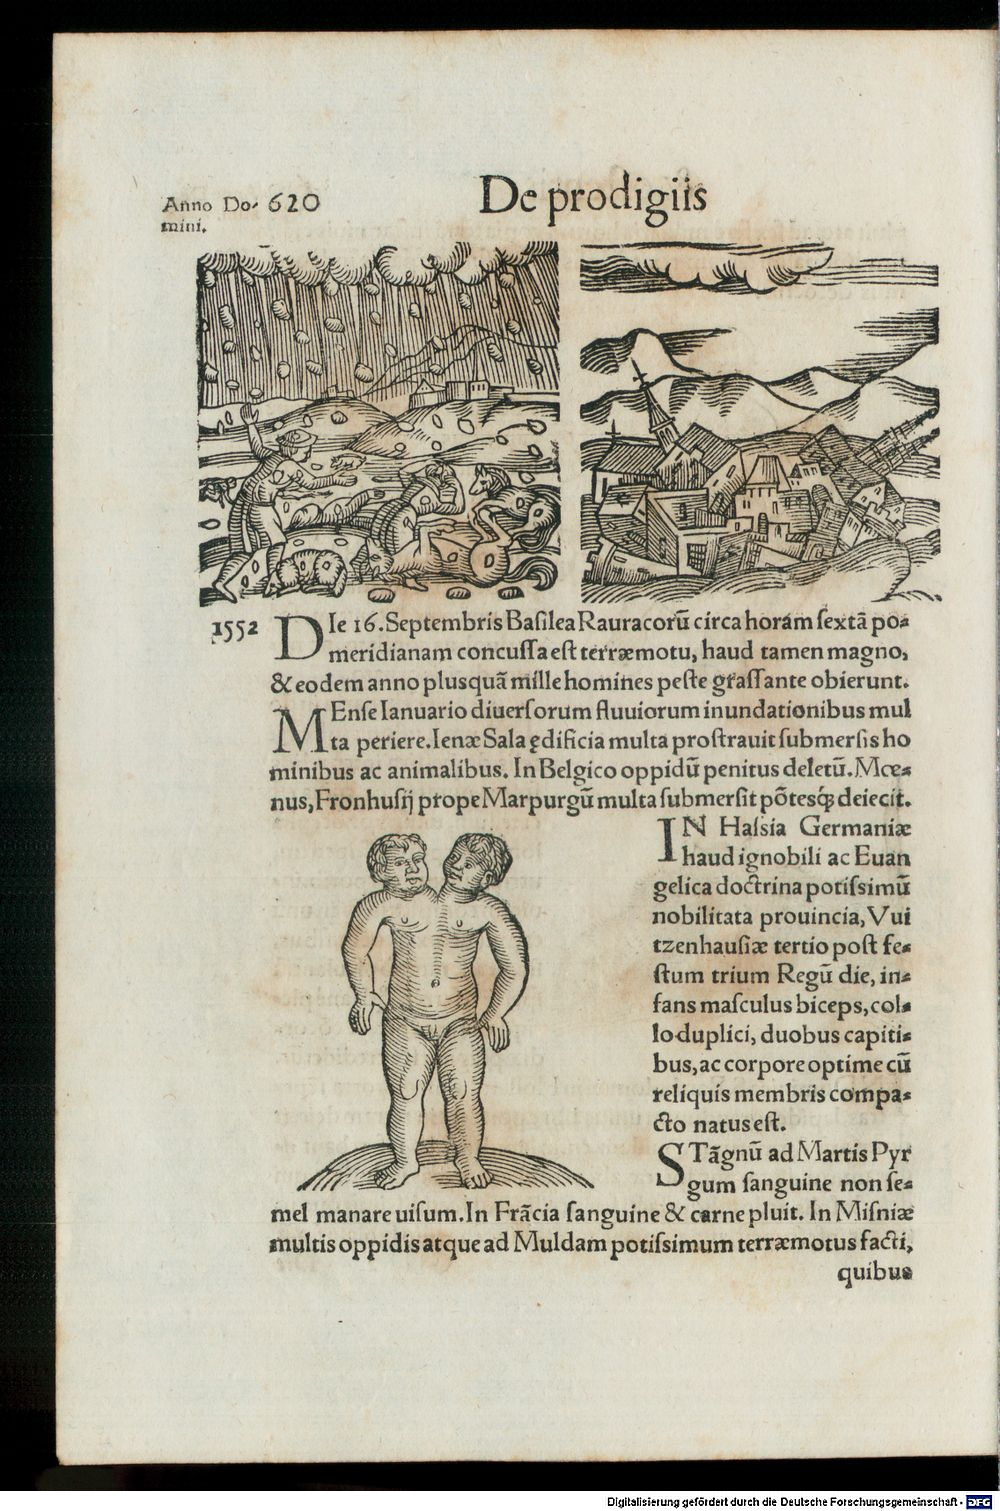 Anno Do- 620
mini.
De prodigiis
1552 DIe 16. Septembris Basilea Rauracorū circa horam sextā po-
meridianam concussa est terræmotu, haud tamen magno,
& eodem anno plusquā mille homines peste grassante obierunt.
MEnse Ianuario diuersorum fluuiorum inundationibus mul
ta periere. Ienæ Sala ędificia multa prostrauit submersis ho
minibus ac animalibus. In Belgico oppidū penitus deletū. Mœ-
nus, Fronhusij prope Marpurgū multa submersit pōtesq́; deiecit.
IN Hassia Germaniæ
haud ignobili ac Euan
gelica doctrina potissimū
nobilitata prouincia, Vui
tzenhausiæ tertio post fe-
stum trium Regū die, in-
fans masculus biceps, col-
lo duplici, duobus capiti-
bus, ac corpore optime cū
reliquis membris compa-
cto natus est.
STāgnū ad Martis Pyr
gum sanguine non se-
mel manare uisum. In Frācia sanguine & carne pluit. In Misniæ
multis oppidis atque ad Muldam potissimum terræmotus facti,
quibus
Digitalisierung gefördert durch die Deutsche Forschungsgemeinschaft - DFG